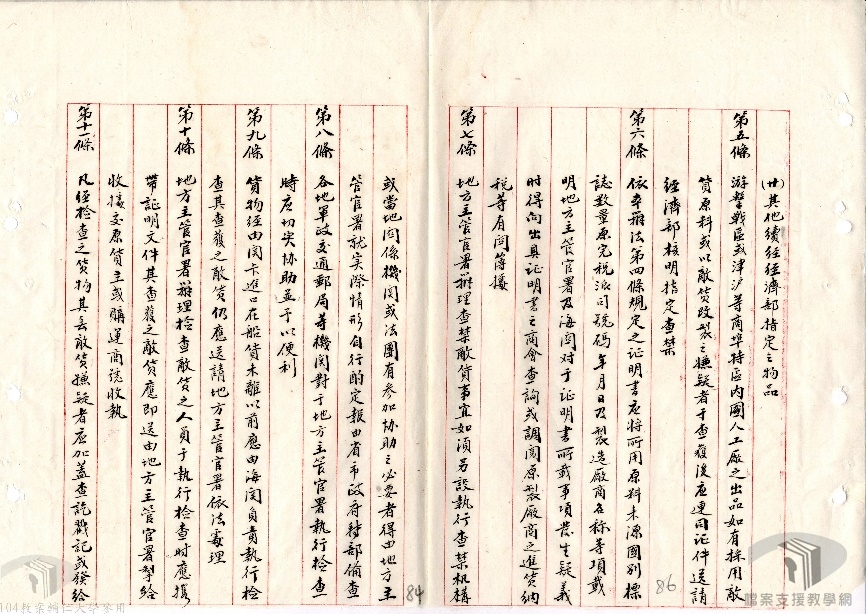 (廿)其他續經經濟部指定之物品
第五條　游擊戰區或津沪等商埠特區內國人工廠之出品如有採用敵
貨原料或以敵貨改製之嫌疑者于查覆後应連同証件送請
經濟部核明指定查禁
第六條　依本辦法第四條規定之証明書应將所用原料來源國別標
誌數量原完稅派司號碼年月日及製造廠商名称等項載
明地方主管官署及海関对于証明書所載事項發生疑義
時得向出具証明書之商會查詢或調閱原製廠商之進貨納
稅等有関簿據
第七條　地方主管官署辦理查禁敵貨事宜如須另設執行查禁机構
或當地関係機関或法團有參加协助之必要者得由地方主
管官署就实際情形自行酌定報由省市政府轉部備查
第八條　各地軍政交通郵局等機関對于地方主管官署執行檢查
時应切实协助並予以便利
第九條　貨物經由関卡進口在船貨未離以前應由海関負責執行檢
查其查獲之敵貨仍應送請地方主管官署依法處理
第十條　地方主管官署辦理檢查敵貨之人員于執行檢查时應攜
帶証明文件其查獲之敵貨應即送由地方主管官署掣給
收據交原貨主或購運商號收執
第十一條　凡經檢查之貨物其無敵貨嫌疑者应加蓋查訖戳記或發給
86
84
檔案支援教學網
檔案支援教學網
104教案輔仁大學參用